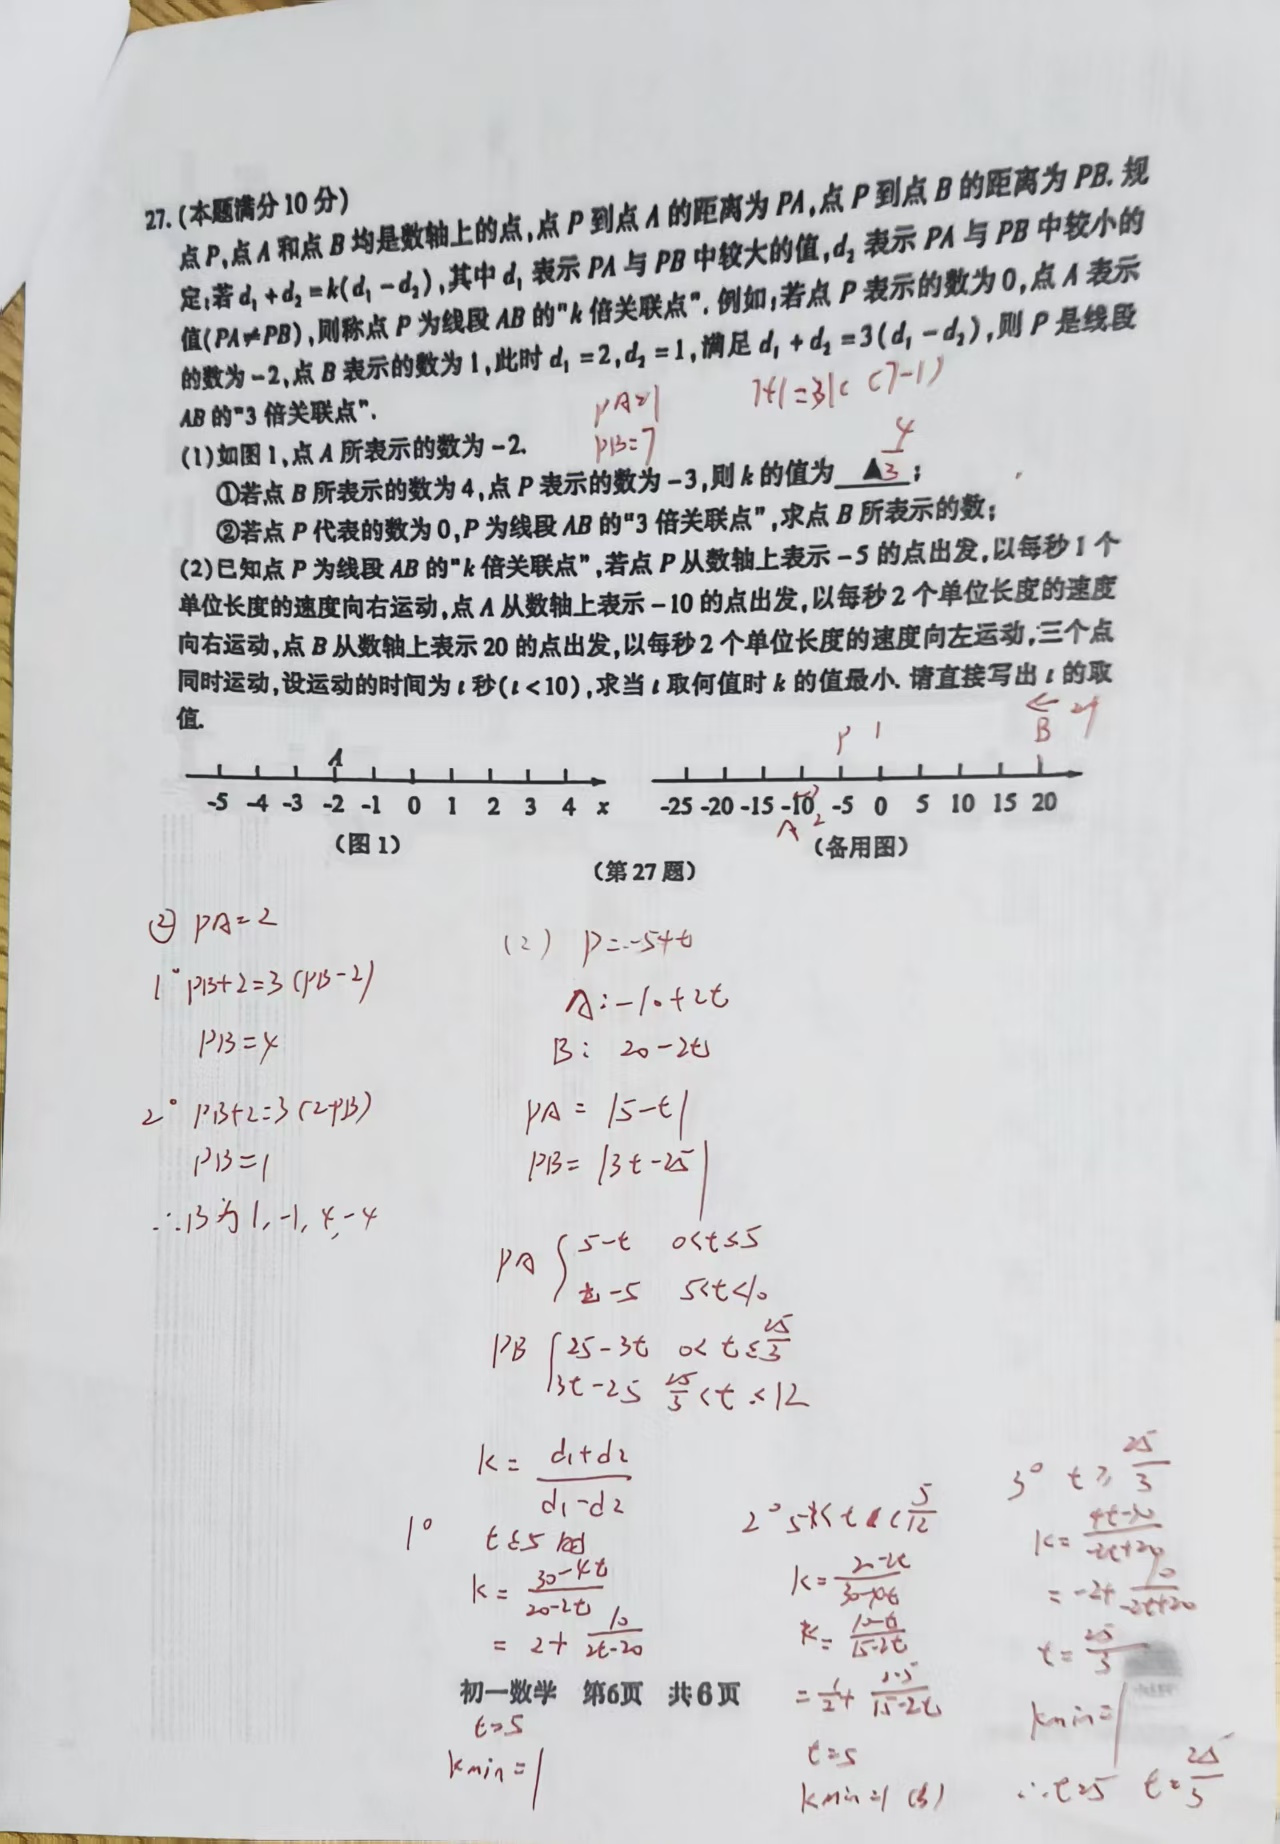 27.(本题满分10分)
点P,点A和点B均是数轴上的点,点P到点A的距离为PA,点P到点B的距离为PB.规
定:若d₁+d₂=k(d₁-d₂),其中d₁表示PA与PB中较大的值,d₂表示PA与PB中较小的
值(PA≠PB),则称点P为线段AB的"k倍关联点".例如:若点P表示的数为0,点A表示
的数为-2,点B表示的数为1,此时d₁=2,d₂=1,满足d₁+d₂=3(d₁-d₂),则P是线段
AB的"3倍关联点".
PA=1
7+1=3k(7-1)
(1)如图1,点A所表示的数为-2.
PB=7
①若点B所表示的数为4,点P表示的数为-3,则k的值为 ▲ 4/3 ;
②若点P代表的数为0,P为线段AB的"3倍关联点",求点B所表示的数;
(2)已知点P为线段AB的"k倍关联点",若点P从数轴上表示-5的点出发,以每秒1个
单位长度的速度向右运动,点A从数轴上表示-10的点出发,以每秒2个单位长度的速度
向右运动,点B从数轴上表示20的点出发,以每秒2个单位长度的速度向左运动,三个点
同时运动,设运动的时间为t秒(t<10),求当t取何值时k的值最小.请直接写出t的取
值.
A
P 1
← B
-5 -4 -3 -2 -1 0 1 2 3 4 x
-25 -20 -15 -10 -5 0 5 10 15 20
A 2
(图1)
(备用图)
(第27题)
② PA=2
1° PB+2=3(PB-2)
PB=4
2° PB+2=3(2-PB)
PB=1
∴B为1,-1,4,-4
(2) P=-5+t
A:-10+2t
B: 20-2t
PA=|5-t|
PB=|3t-25|
PA { 5-t 0<t≤5
t-5 5<t<10
PB { 25-3t 0<t≤25/3
3t-25 25/3<t≤12
k=(d₁+d₂)/(d₁-d₂)
1° t≤5时
k=(30-4t)/(20-2t)
=2+10/(2t-20)
t=5
kmin=1
2°
k=(10-t)/(15-2t)
t=5
kmin=1
3° t≥25/3
k=(4t-30)/(-2t+20)
=-2+10/(-2t+20)
t=25/3
kmin=1
∴t=5 t=25/3
初一数学 第6页 共6页